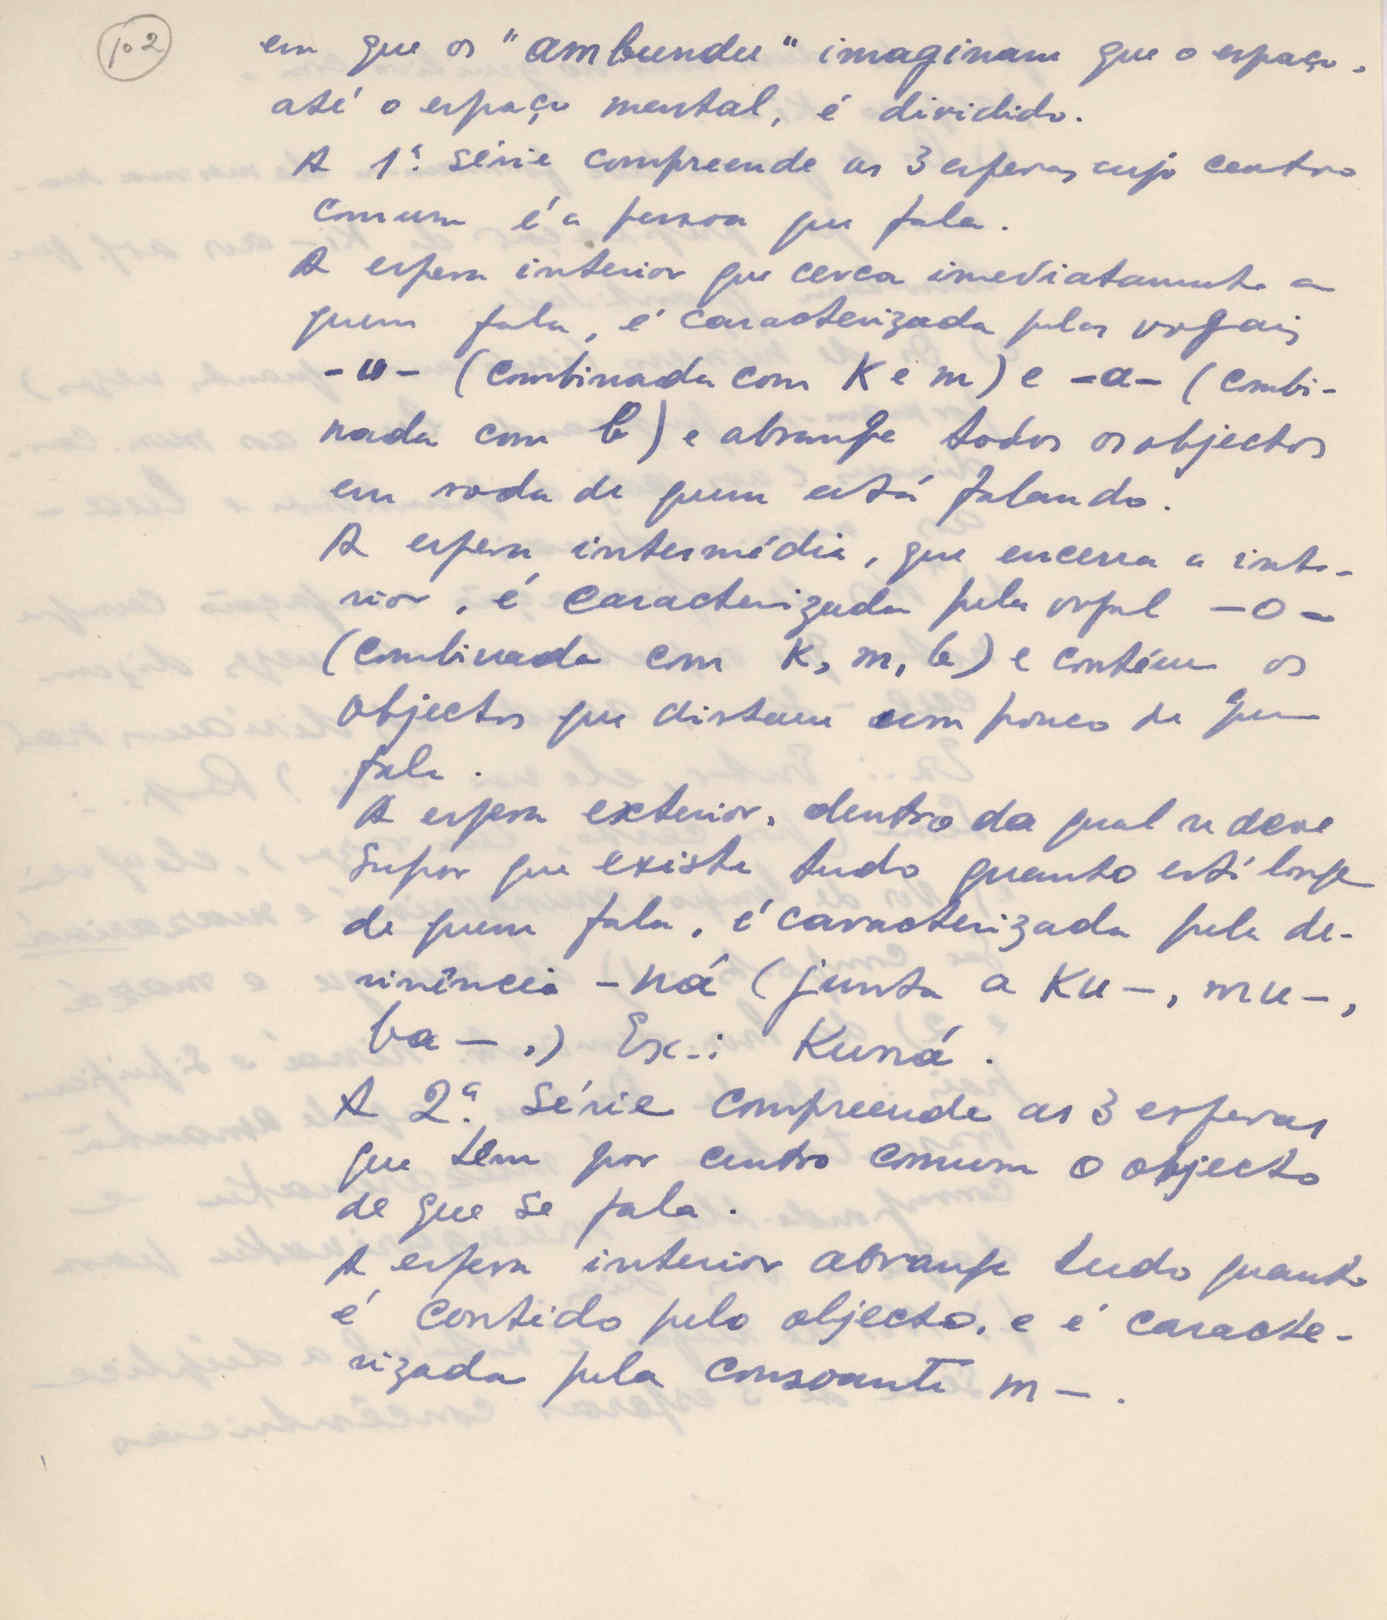 p. 2
em que os "ambundu" imaginam que o espaço,
até o espaço mental, é dividido.
A 1ª. série compreende as 3 esferas cujo centro
comum é a pessoa que fala.
A esfera interior que cerca imediatamente a
quem fala, é caracterizada pelas vogais
-u- (combinada com K e m) e -a- (combi-
nada com b) e abrange todos os objectos
em roda de quem está falando.
A esfera intermédia, que encerra a inte-
rior, é caracterizada pela vogal -o-
(combinada com K, m, b) e contém os
objectos que distam um pouco de quem
fala.
A esfera exterior, dentro da qual se deve
supor que existe tudo quanto está longe
de quem fala, é caracterizada pela de-
sinência -ná (junta a Ku-, mu-,
ba-,) Ex.: Kuná.
A 2ª. série compreende as 3 esferas
que têm por centro comum o objecto
de que se fala.
A esfera interior abrange tudo quanto
é contido pelo objecto, e é caracte-
rizada pela consoante m-.